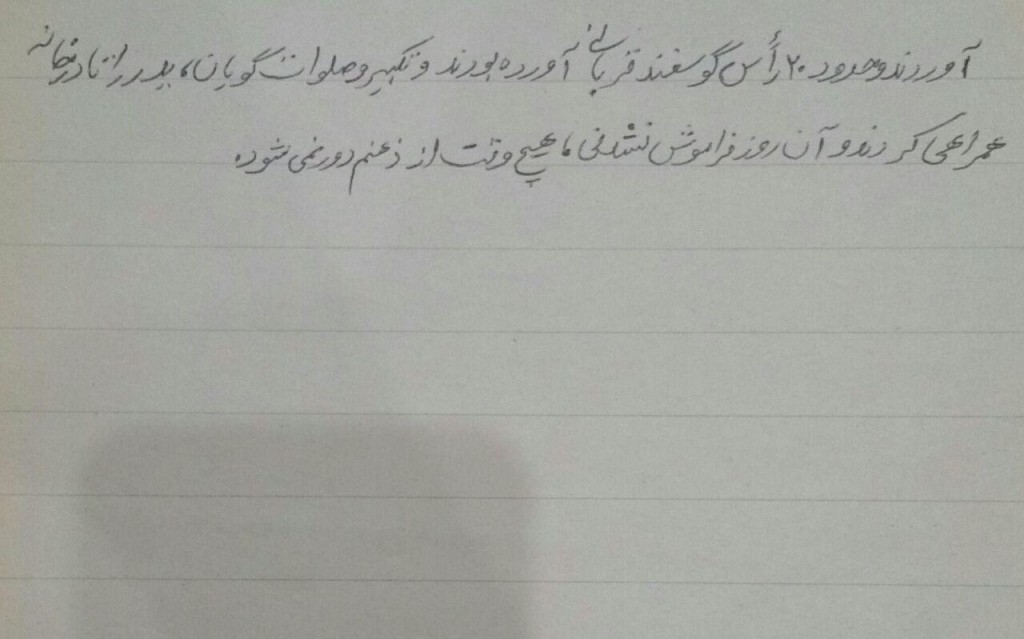 آوردند و حدود ۲۰ رأس گوسفند قربانی آورده بودند و تکبیر و صلوات گویان، پدر را تا درخانه
همراهی کردند و آن روز فراموش نشدنی، هیچ وقت از ذهنم دور نمی شود.